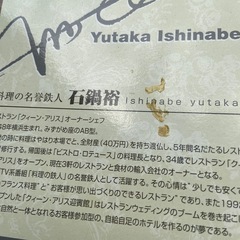 Yutaka Ishinabe
料理の名誉鉄人 石鍋裕 Ishinabe yutaka
ストラン「クィーン・アリス」オーナーシェフ
8年横浜生まれ、みずがめ座のAB型。
の時に料理はやり市場で、全財産(40万円)を持ち渡仏し、5年間名だたるレス
修行する。帰国後は「ビストロ・ロテュース」の料理長となり、34歳でレストラン「クィ
アリス」をオープン、現在3軒のレストランと食材の輸入会社のオーナーとなる。
TV系番組「料理の鉄人」の名誉鉄人として活躍する。その心情は"少しでも安くて
フランス料理"と"お客様が思い出づくりのできるレストラン"であり、また199
ンした「クィーン・アリス迎賓館」はレストランウェディングのブームを巻き起こし
自然と一体となれるお客様参加型の、自給自足のホテルを作るのが夢である。